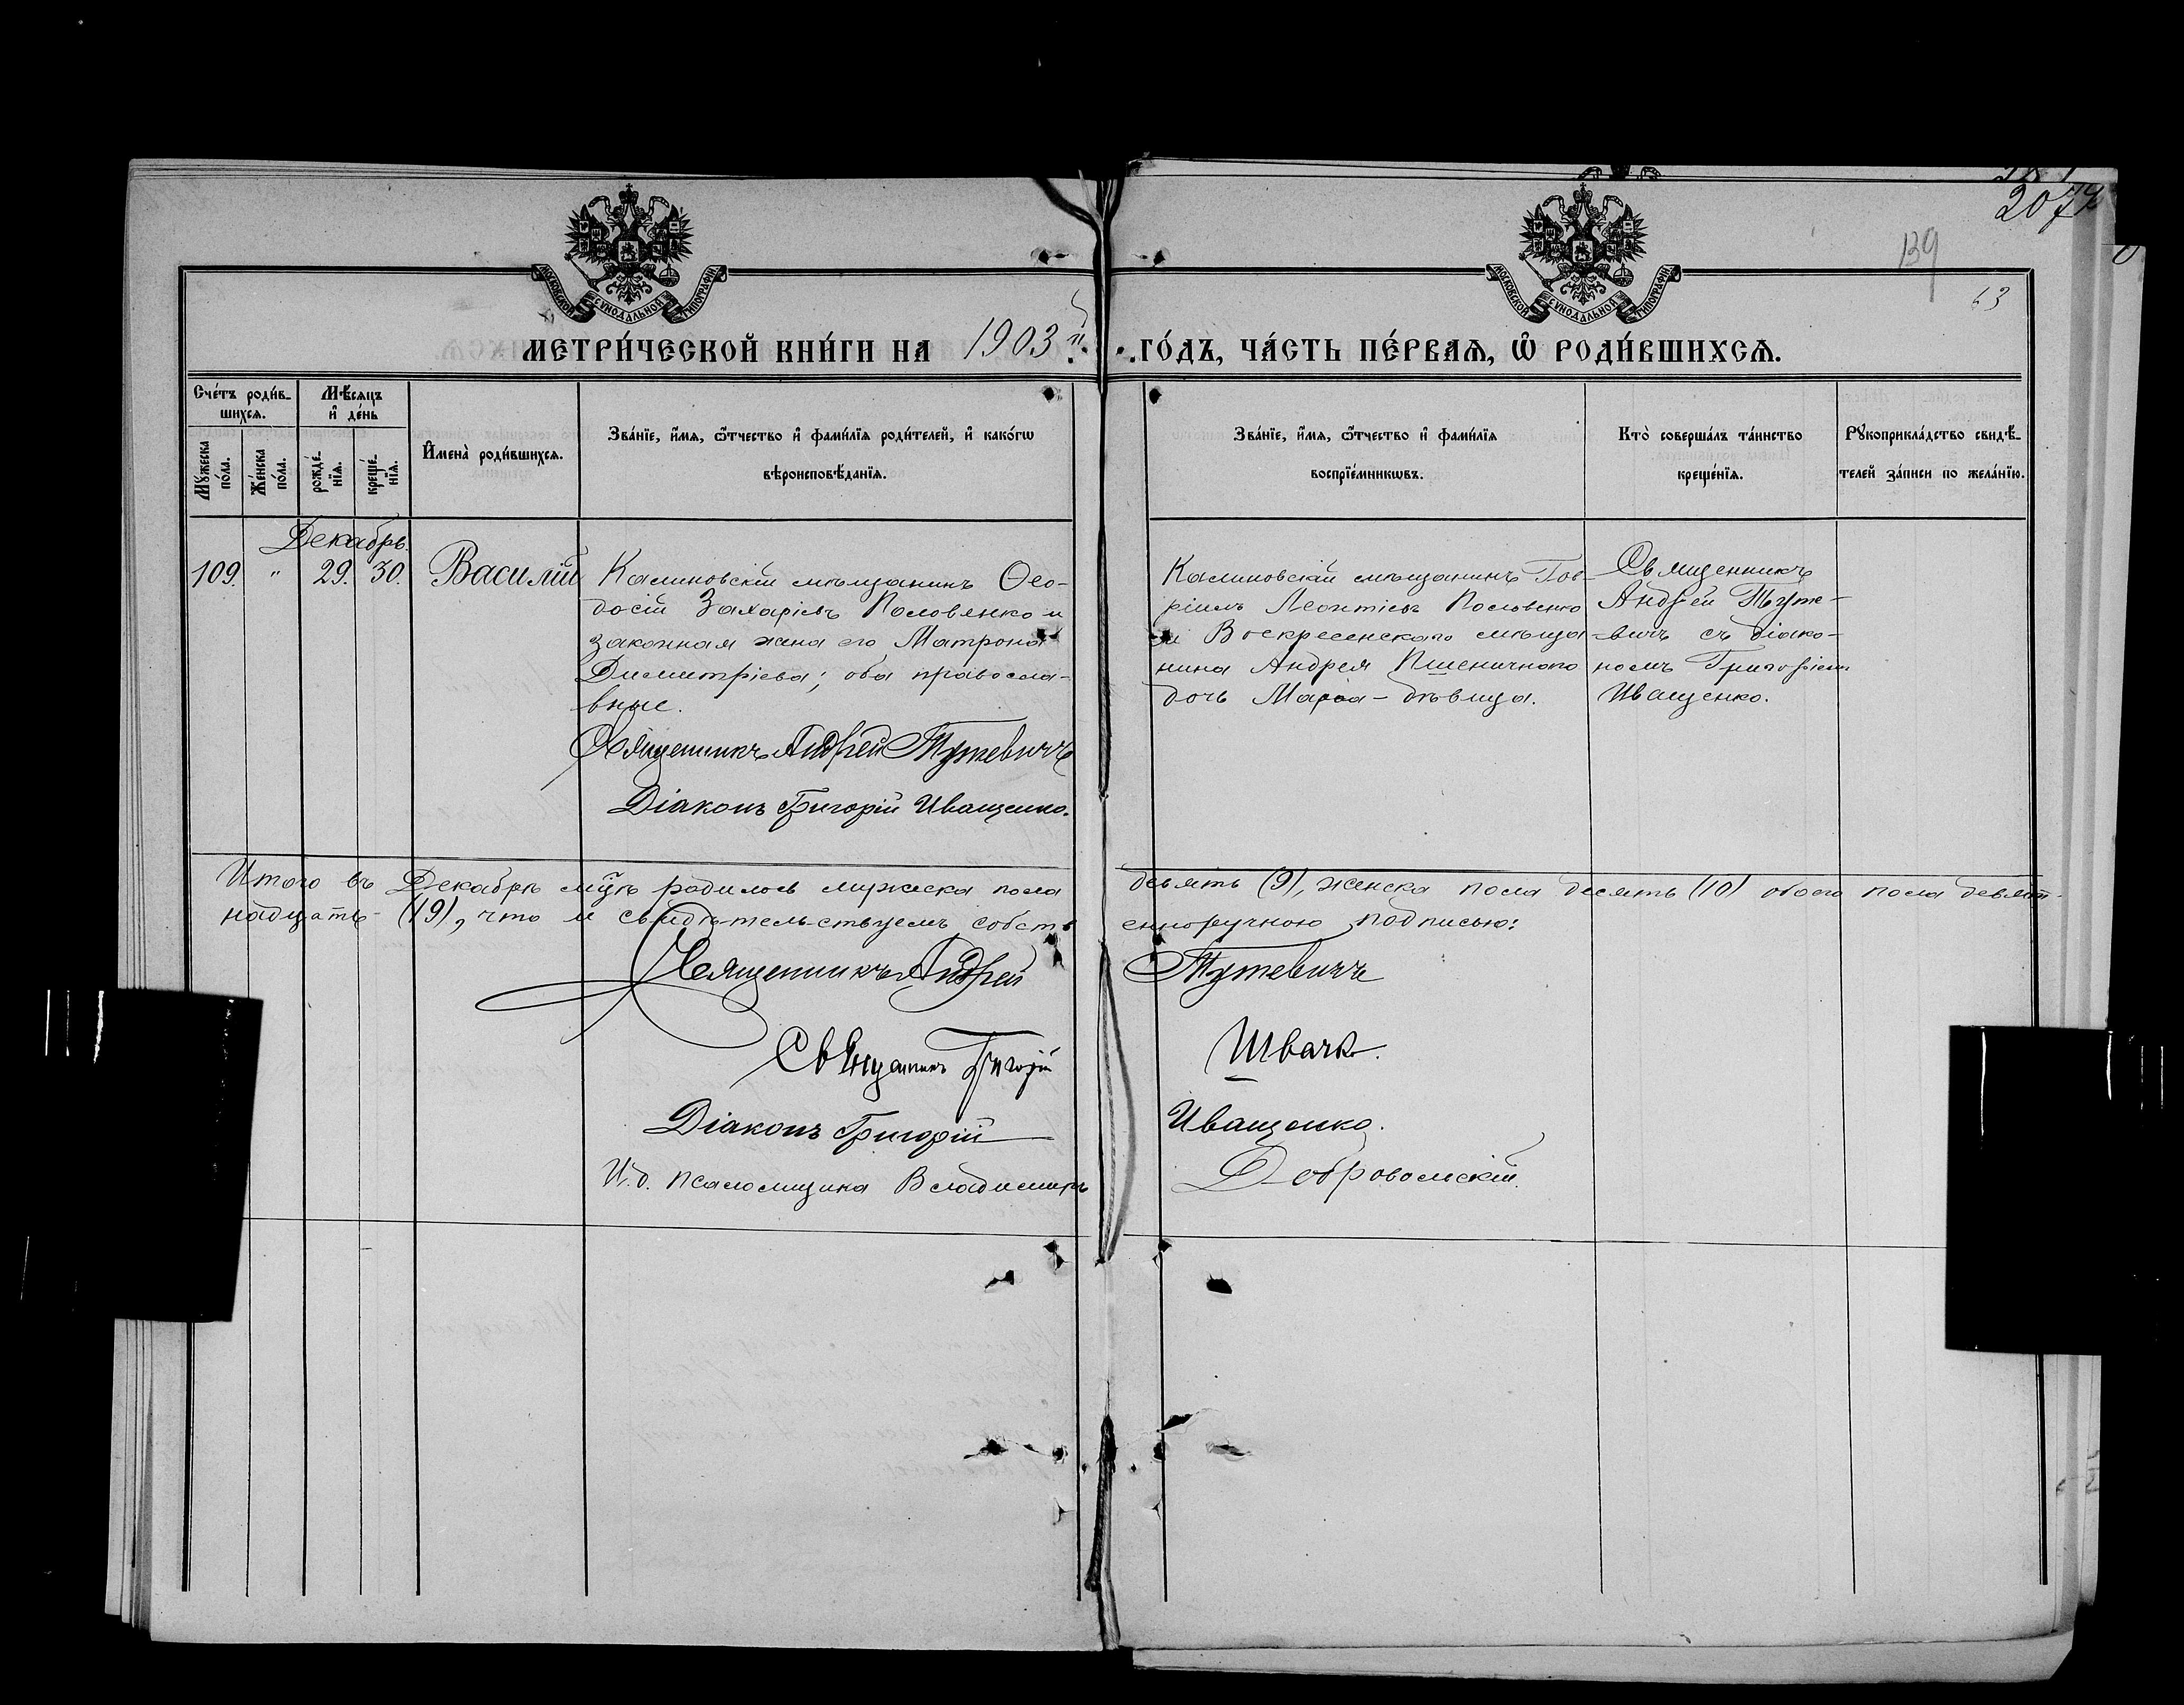 207
139
63
МОСКОВСКОЙ СѴНОДАЛЬНОЙ ТИПОГРАФІИ
МОСКОВСКОЙ СѴНОДАЛЬНОЙ ТИПОГРАФІИ
МЕТРИ́ЧЕСКОЙ КНИ́ГИ НА 1903й ГО́ДЪ, ЧА́СТЬ ПЕ́РВАѦ, Ѿ РОДИ́ВШИХСѦ.
Сче́тъ роди́в-
шихсѧ.
Мꙋ́жеска по́ла.
Же́нска по́ла.
Мѣ́сяцъ
и҆ де́нь
рожде́-нїѧ.
креще́-нїѧ.
И҆мена̀ роди́вшихсѧ.
Зва́нїе, и҆́мѧ, ѻ҆́тчество и҆ фами́лїѧ роди́телей, и҆ како́гѡ
вѣроисповѣ́данїѧ.
Зва́нїе, и҆́мѧ, ѻ҆́тчество и҆ фами́лїѧ
воспрїе́мникѡвъ.
Кто̀ соверша́лъ та́инство
креще́нїѧ.
Рꙋкоприкла́дство свидѣ́-
телей за́писи по жела́нїю.
Декабрь.
109. " 29. 30. Василій
Калиновскій мѣщанинъ Ѳео-
досій Захаріевъ Половенко и
законная жена его Матрона
Димитріева; оба правосла-
вные.
Священникъ Андрей Тутевичъ
Діаконъ Григорій Иващенко.
Калиновскій мѣщанинъ Гав-
ріилъ Леонтіевъ Половенко
и Воскресенскаго мѣща-
нина Андрея Пшеничнаго
дочь Марѳа - дѣвица.
Священникъ
Андрей Туте-
вичъ съ діако-
номъ Григоріемъ
Иващенко.
Итого въ Декабрѣ мцѣ родилось мужеска пола девять (9), женска пола десять (10) обоего пола девят-
надцать (19), что и свидѣтельствуемъ собств енноручною подписью:
Священникъ Андрей Тутевичъ
Священникъ Григорій Швачк.
Діаконъ Григорій Иващенко.
И.д. псаломщика Владимиръ Добровольскій.